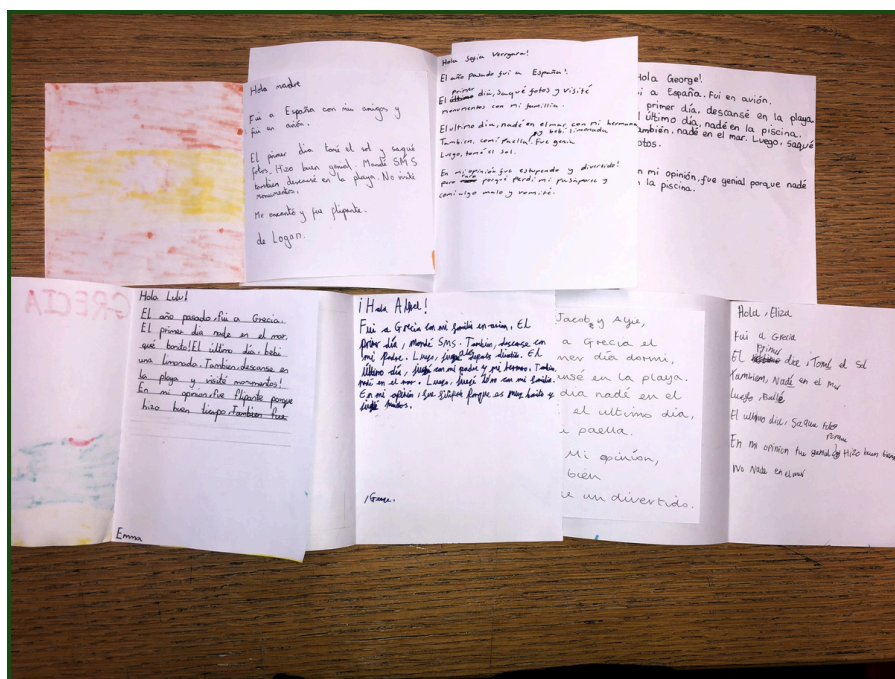 Hola madre
Fui a España con mis amigos y
fui en avión.
El primer día tomé el sol y saqué
fotos. Hizo buen genial. Mandé SMS
también descansé en la playa. No visité
monumentos.
Me encantó y fue flipante.
de Logan.
Hola Sofia Vergara!
El año pasado fui a España!
El primer día, saqué fotos y visité
monumentos con mi familia.
El ultimo dia, nadé en el mar con mi hermana
y bebí limonada
Tambien, comí Paella! Fue genia
Luego, tomé el sol.
En mi opinión fue estupendo y divertido!
pero porqué perdí mi pasaporte y
comí algo malo y vomité.
Hola George!
i a España. Fui en avión.
primer día, descansé en la playa
l último día, nadé en la piscina.
ambién, nadé en el mar. Luego, saqué
otos.
n mi opinión, fue genial porque nadé
n la piscina.
GRECIA
Hola Lulu!
El año pasado, fui a Grecia.
El primer día nade en el mar,
qué bonito! El último día, bebí
una limonada. Tambien, descansé en
la playa y visité monumentos!
En mi opinion, fue flipante porque
hizo buen tiempo. Tambien fue
Emma
¡Hola !
Fui a Grecia con mi familia en avion. El
primer día, mandé SMS. Tambien, descanse con
mi padre. Luego, El
último día, con mi padre y mi hermano. Tambien,
nadé en el mar. Luego, con mi familia.
En mi opinión, fue porque es muy bonito y
Jacob y Ayie,
a Grecia el
mer día dormi,
nsé en la playa.
dia nadé en el
el ultimo dia,
paella.
Mi opinión,
bién
e un divertido.
Hola, Eliza
Fui a Grecia
Primer
El dia, Tomé el Sol
Tambien, Nadé en el Mar
luego, Bailé
El ultimo dia, Saque fotos
porque
En mi opinion fue genial Hizo buen tiem
No Nade en el mar